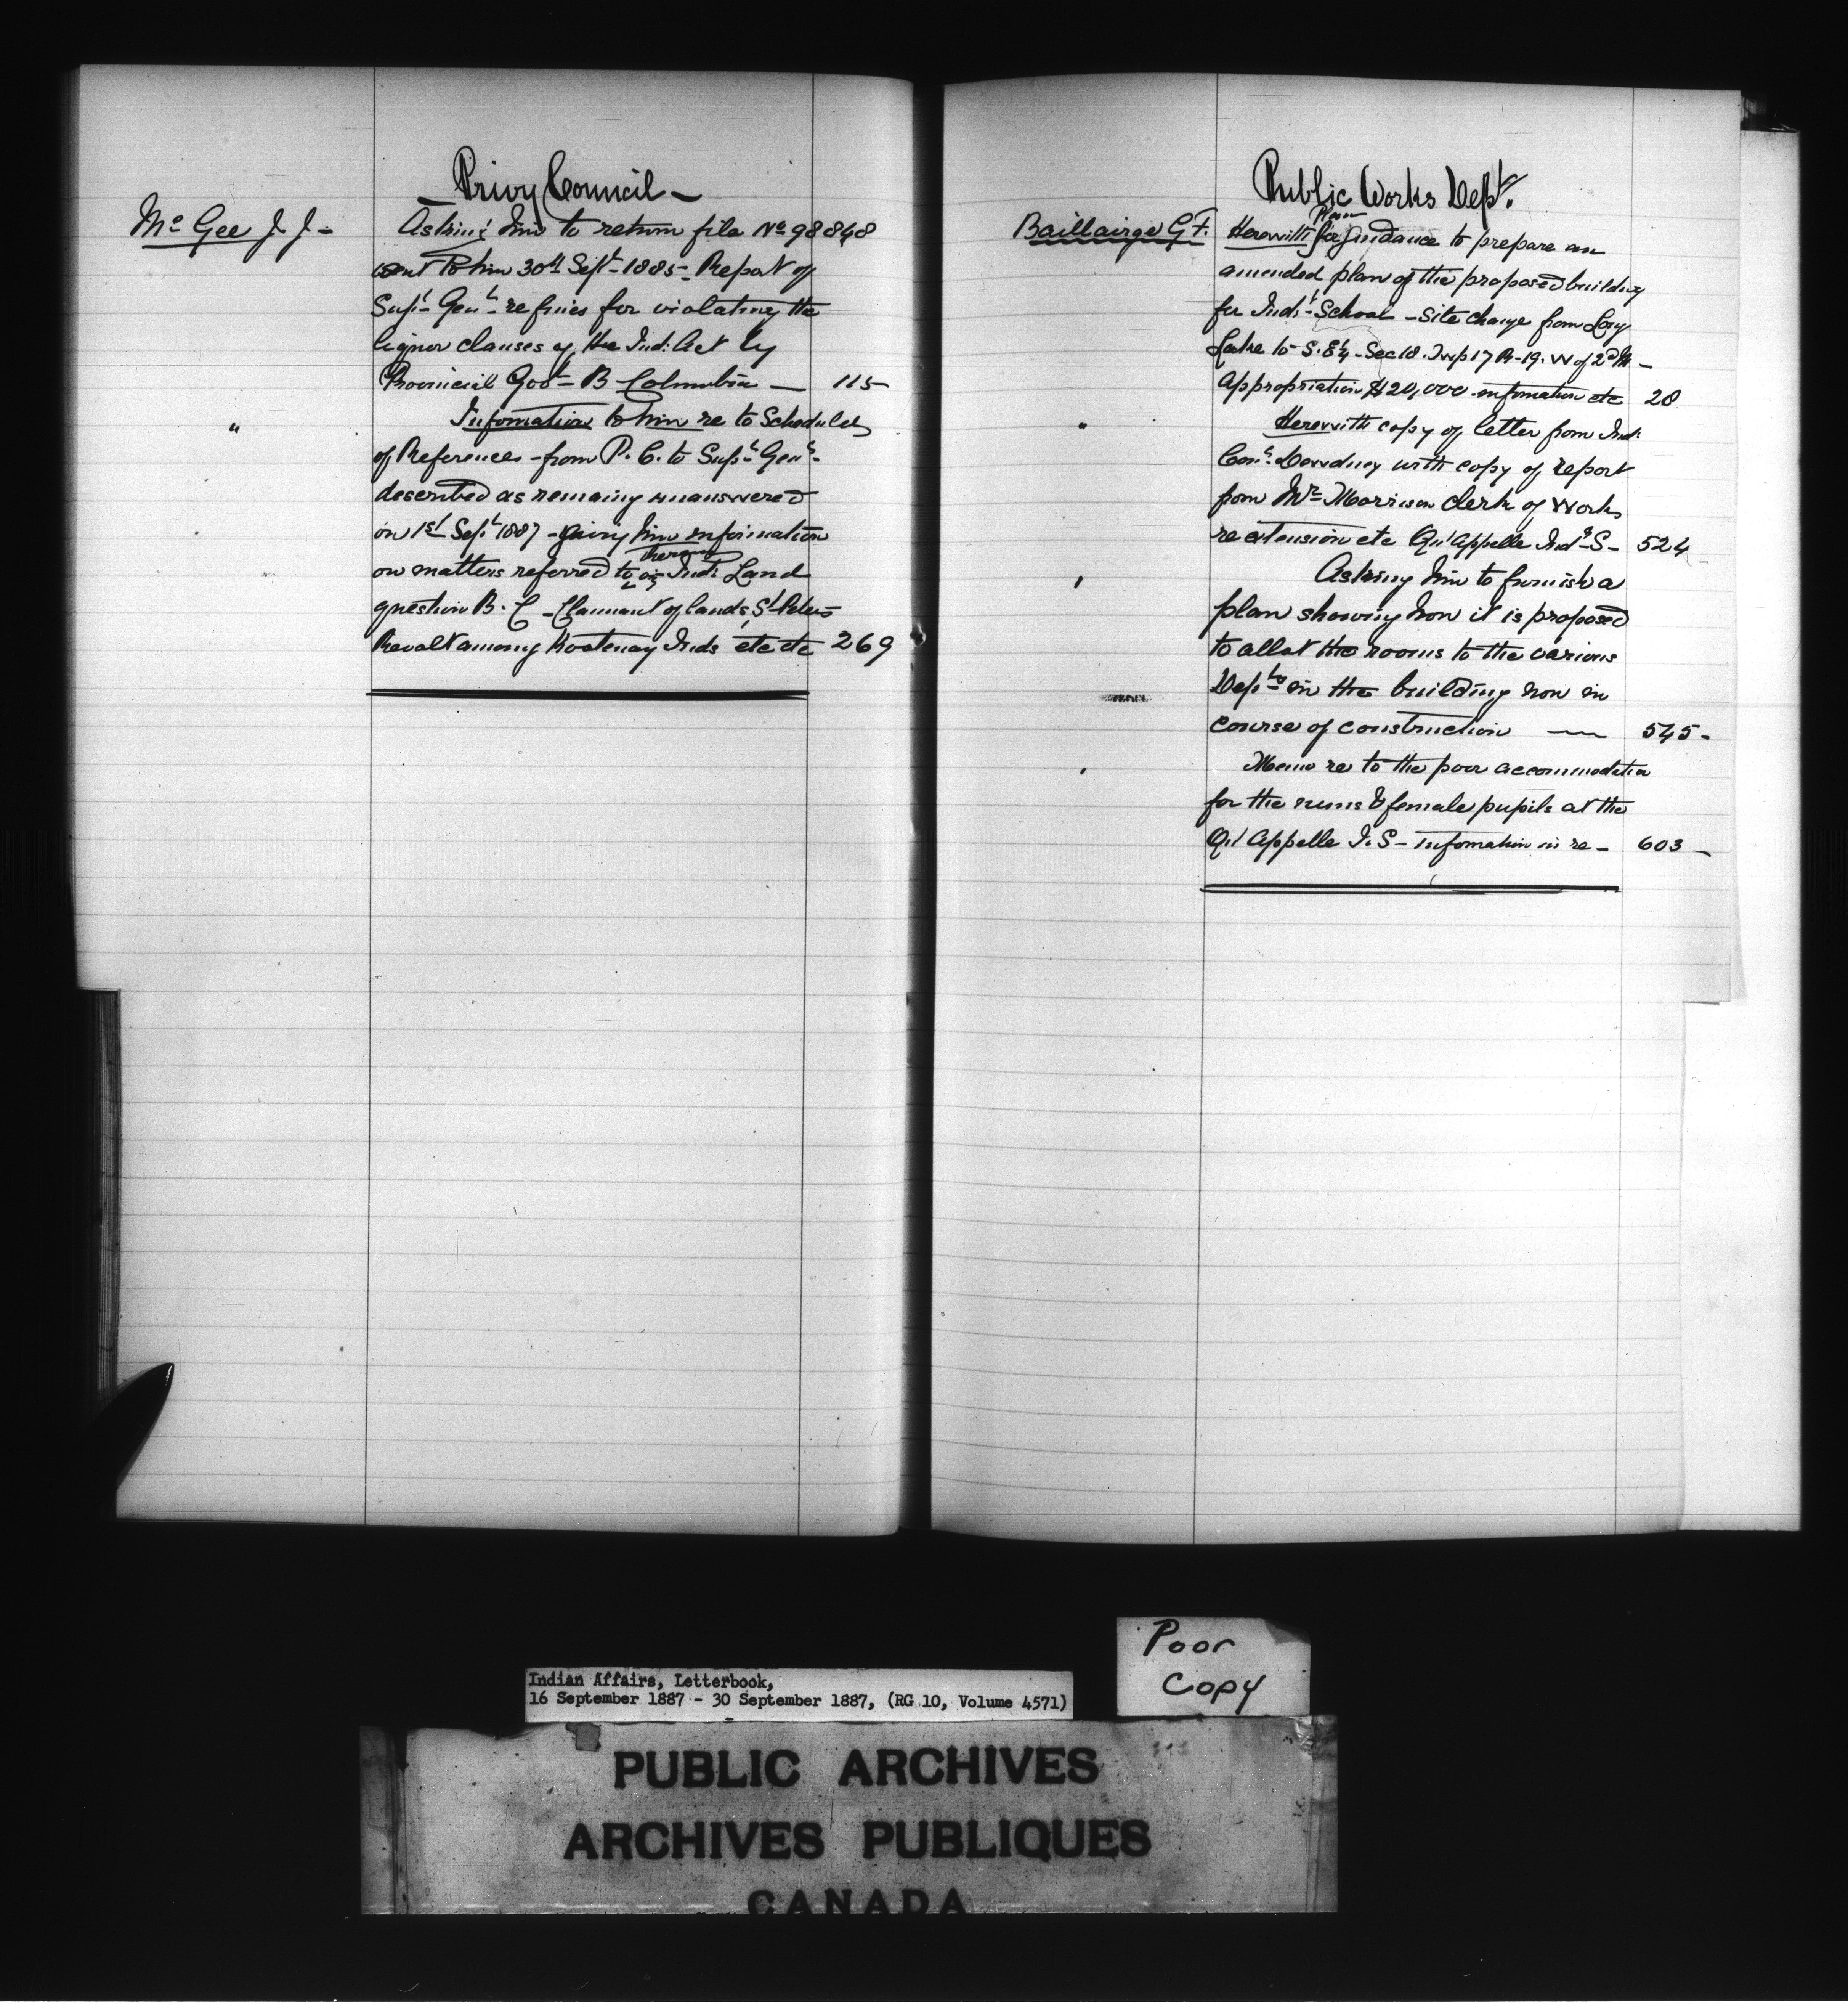 Privy Council –
Mc Gee J. J –
Asking him to return file No 98848
sent to him 30th Sept 1885 – Report of
Supt Genl re fines for violating the
liquor clauses of the Ind. Act by
Provincial Govt – B Columbia — 115
" Information to him re to Schedules
of References – from P. C. to Supt Genl
described as remaing unanswered
on 1st Sept 1887 – giving him information
thereon
on matters referred to viz Ind. Land
question B. C – Claimant of lands St Peters
Revolt among Kootenay Inds etc etc 269
Public Works Dept.
Plan
Baillairge G F. Herewith for guidance to prepare an
amended plan of the proposed building
for Indl School – Site change from Long
Lake to S. E¼ – Sec 18. Twp 17 R-19. W of 2nd M –
Appropriation $20,000 – information etc 28
" Herewith copy of letter from Ind.
Comr. Dewdney with copy of report
from Mr Morrison Clerk of Works
re extension etc Qu'Appelle Indl S – 524
" Asking him to furnish a
plan showing how it is proposed
to allot the rooms to the various
Depts in the building now in
course of construction — 545 –
" Memo re to the poor accommodation
for the nuns & female pupils at the
Qu'Appelle I. S – information in re – 603 –
Poor
Copy
Indian Affairs, Letterbook,
16 September 1887 - 30 September 1887, (RG 10, Volume 4571)
PUBLIC ARCHIVES
ARCHIVES PUBLIQUES
CANADA